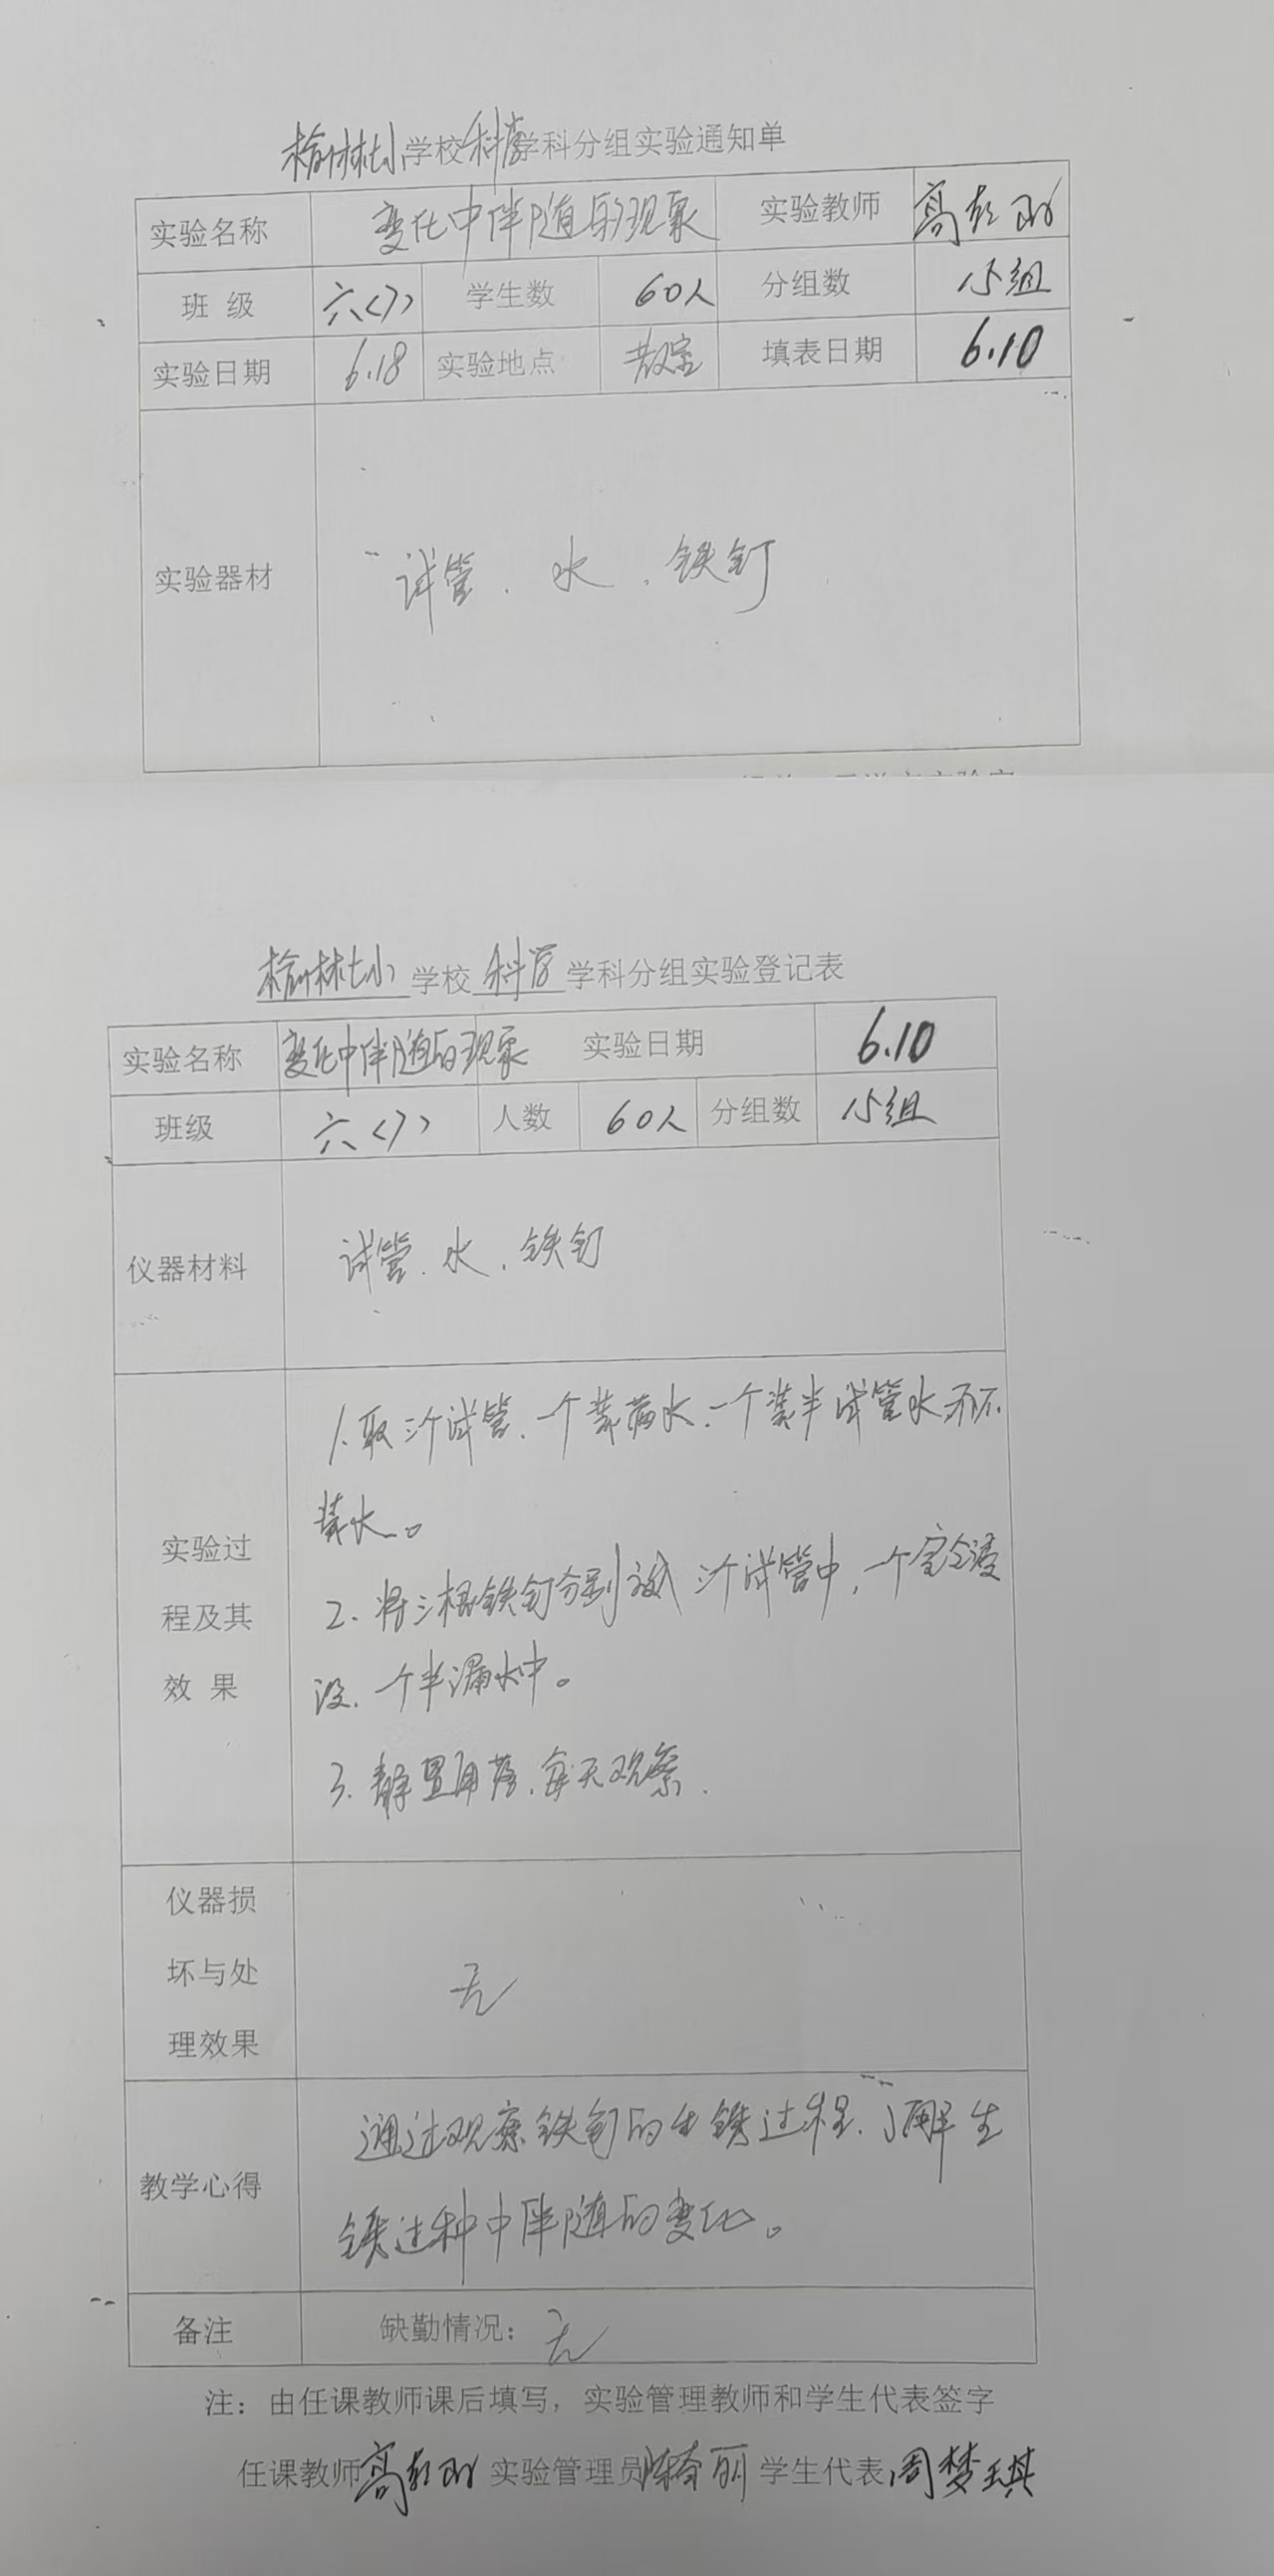 榆林七小学校科学学科分组实验通知单
实验名称 变化中伴随的现象 实验教师 高
班 级 六<7> 学生数 60人 分组数 15组
实验日期 6.18 实验地点 教室 填表日期 6.10
实验器材 试管、水、铁钉
榆林七小学校科学学科分组实验登记表
实验名称 变化中伴随的现象 实验日期 6.10
班级 六<7> 人数 60人 分组数 15组
仪器材料 试管、水、铁钉
实验过
程及其
效 果
1.取三个试管、一个装满水、一个装半试管水、一个不
装水。
2.将三根铁钉分别放入三个试管中,一个完全浸
没、一个半漏水中。
3.静置角落、每天观察.
仪器损
坏与处
理效果
无
教学心得
通过观察铁钉的生锈过程、了解生
锈过种中伴随的变化。
备注 缺勤情况:无
注:由任课教师课后填写,实验管理教师和学生代表签字
任课教师 高 实验管理员 陈 丽 学生代表 周梦琪